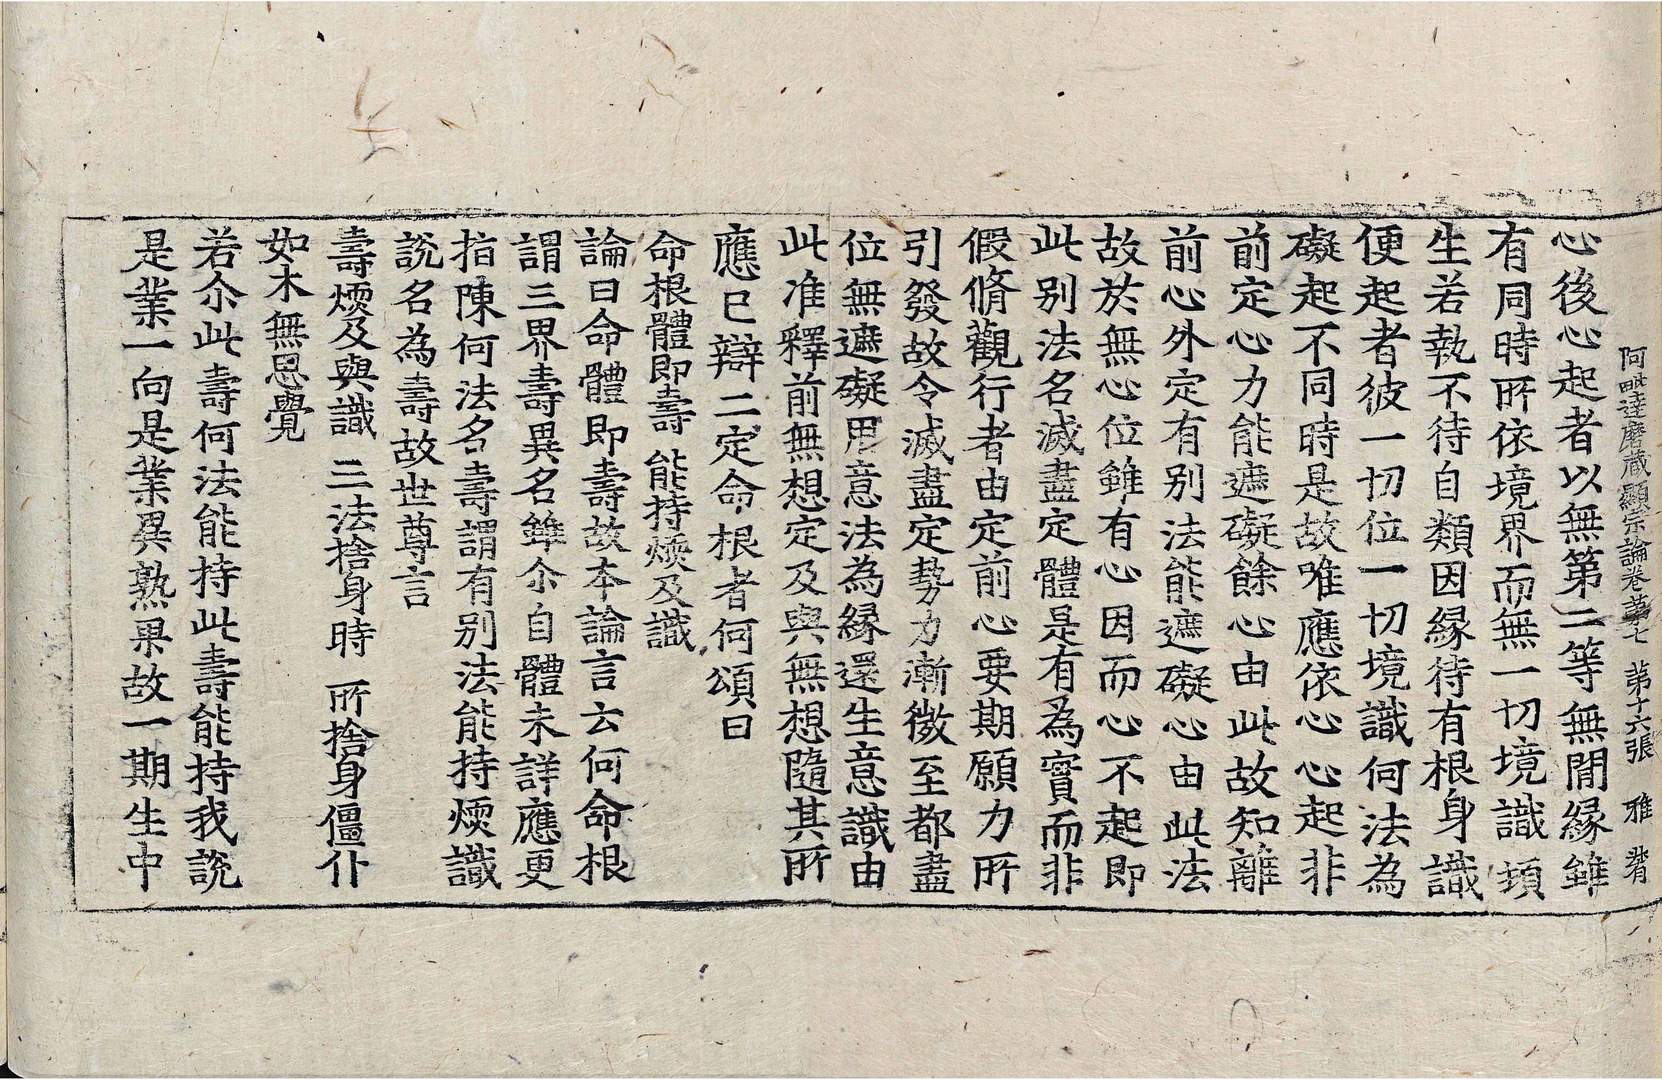 阿毗達磨藏顯宗論卷第七 第十六張 雅
心後心起者以無第二等無間緣雖
有同時所依境界而無一切境識頓
生若執不待自類因緣待有根身識
便起者彼一切位一切境識何法為
礙起不同時是故唯應依心心起非
前定心力能遮礙餘心由此故知離
前心外定有别法能遮礙心由此法
故於無心位雖有心因而心不起即
此别法名滅盡定體是有為實而非
假脩觀行者由定前心要期願力所
引發故令滅盡定勢力漸微至都盡
位無遮礙用意法為緣還生意識由
此准釋前無想定及與無想隨其所
應已辯二定命根者何頌曰
命根體即壽 能持煗及識
論曰命體即壽故本論言云何命根
謂三界壽異名雖尒自體未詳應更
指陳何法名壽謂有别法能持煗識
說名為壽故世尊言
壽煗及與識 三法捨身時 所捨身僵仆
如木無思覺
若尒此壽何法能持此壽能持我說
是業一向是業異熟果故一期生中